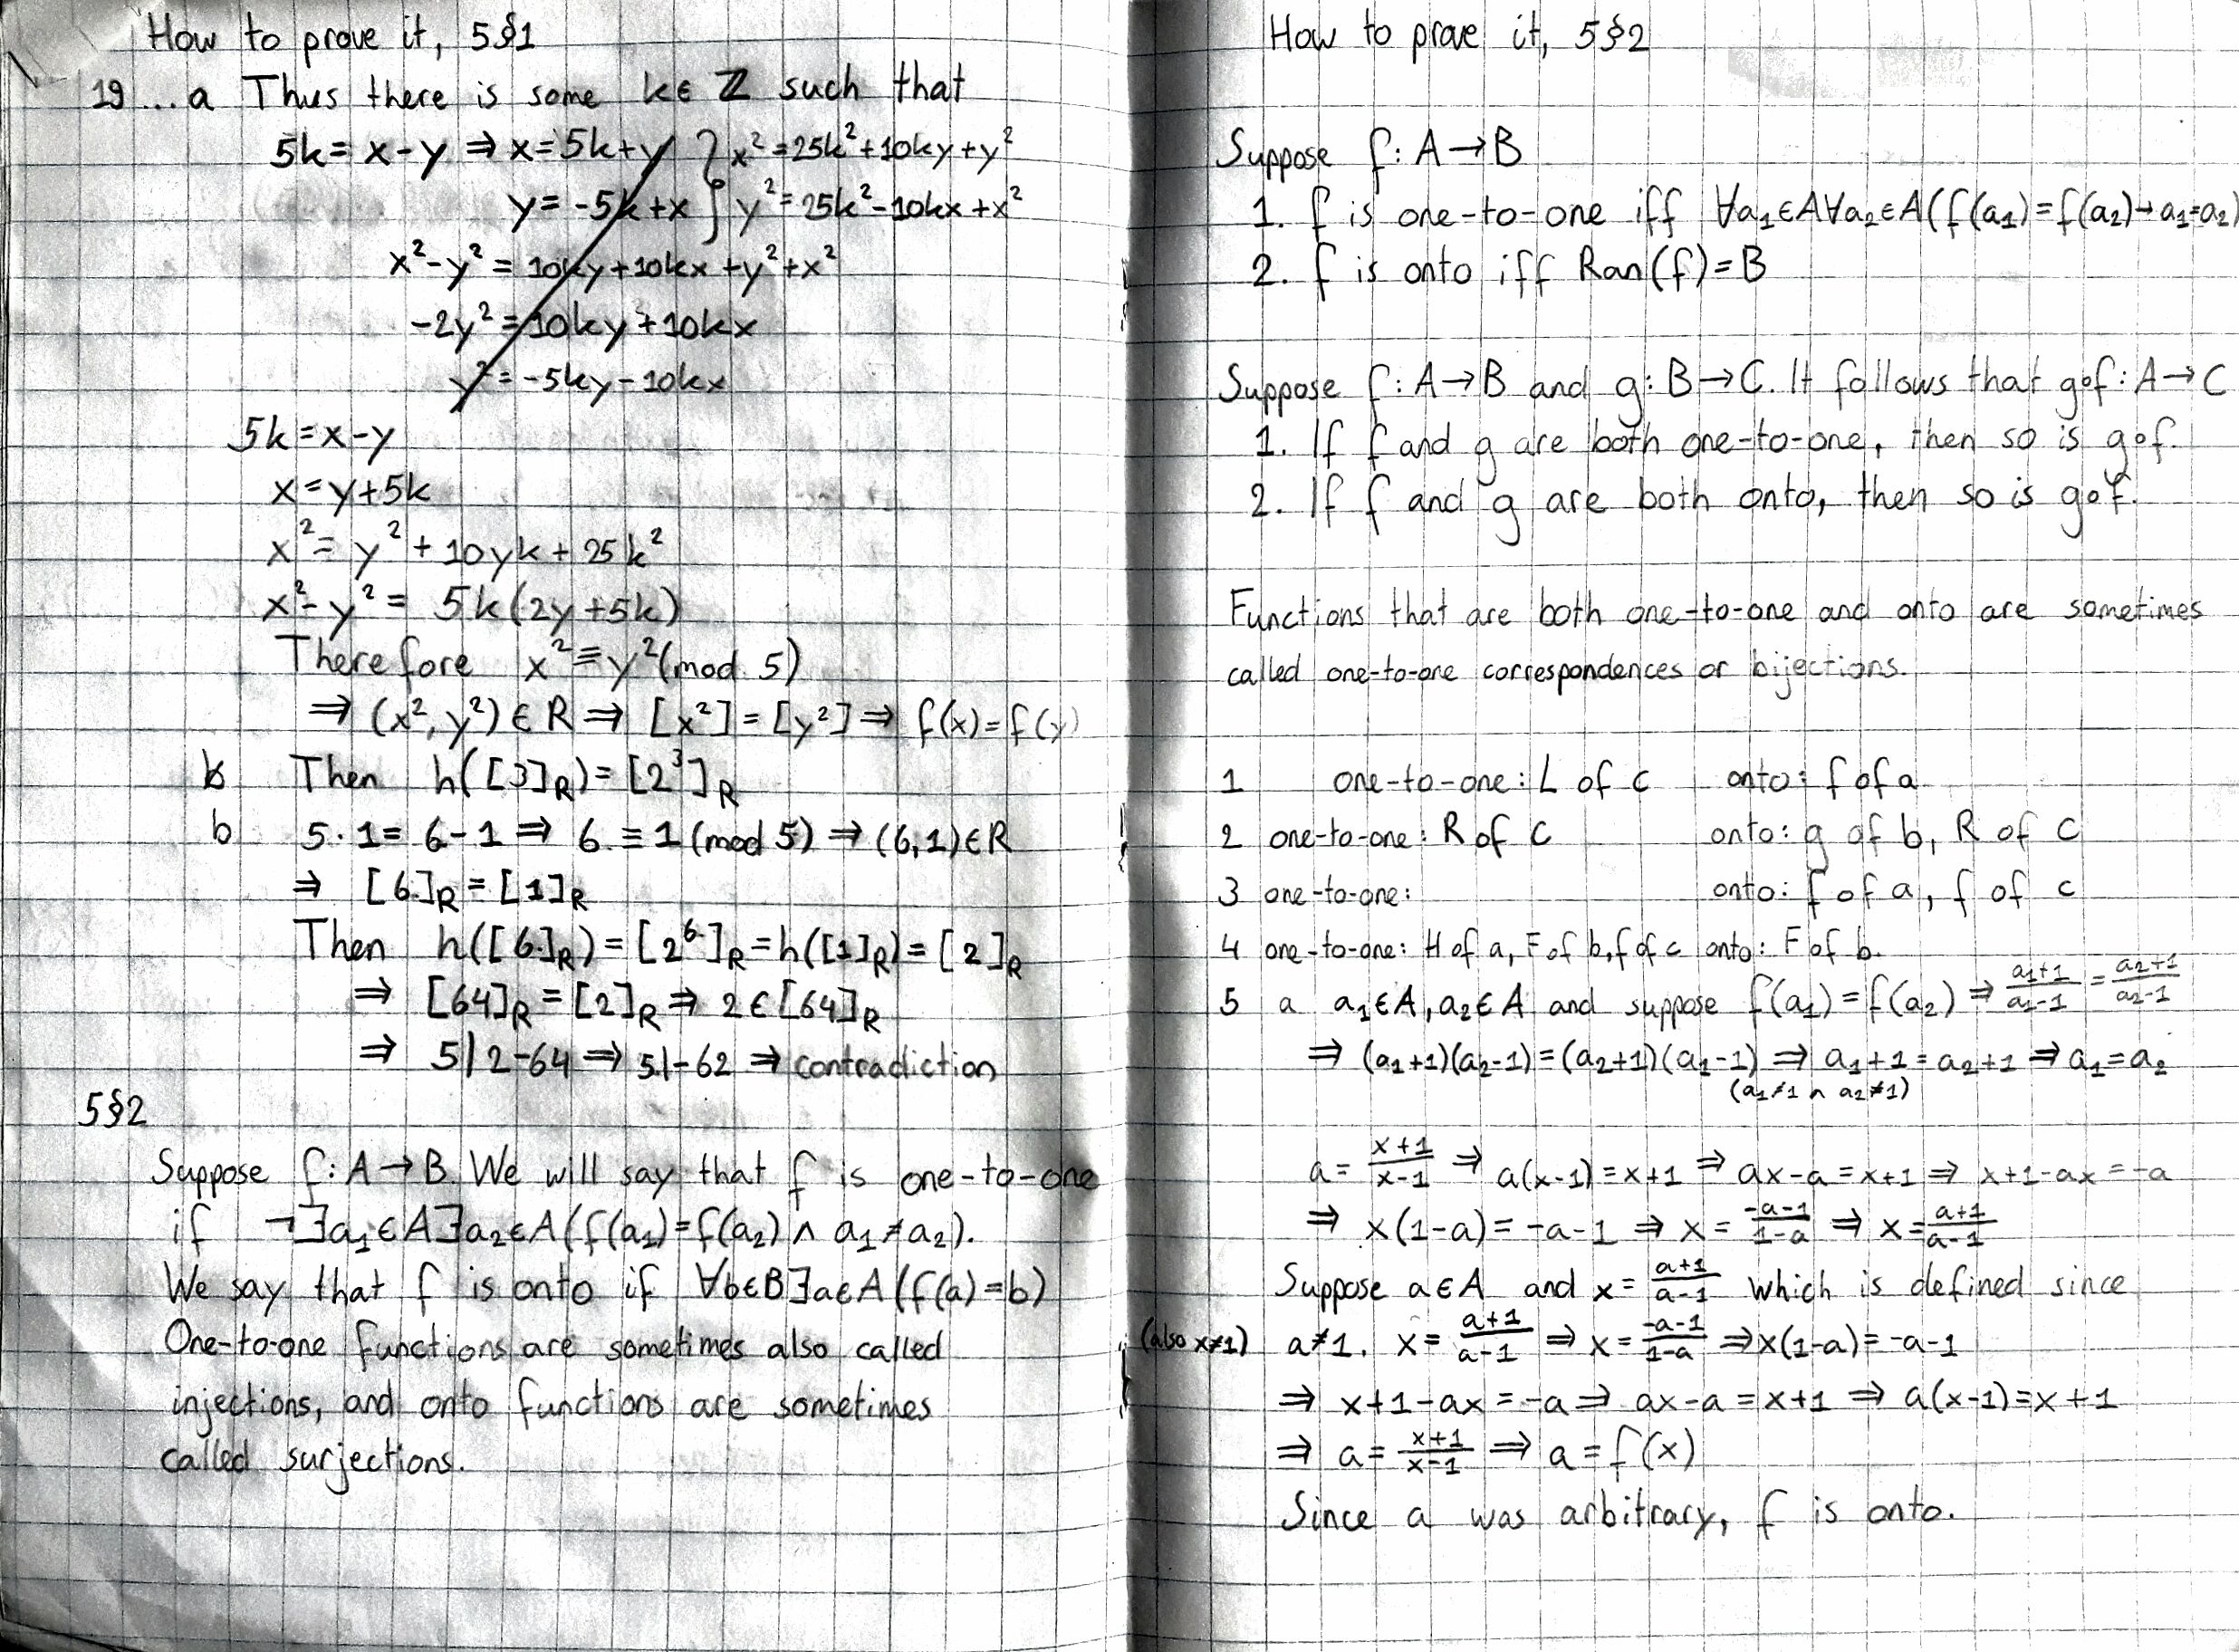 How to prove it, 5§1
19...a Thus there is some k∈ℤ such that
5k = x-y ⇒ x=5k+y } x²=25k²+10ky+y²
y=-5k+x } y²=25k²-10kx+x²
x²-y² = 10ky+10kx+y²+x²
-2y² = 10ky+10kx
y²=-5ky-10kx
5k=x-y
x=y+5k
x²=y²+10yk+25k²
x²-y²= 5k(2y+5k)
Therefore x²≡y²(mod 5)
⇒ (x²,y²)∈R ⇒ [x²]=[y²] ⇒ f(x)=f(y)
b Then h([3]_R)=[2³]_R
b 5·1= 6-1 ⇒ 6≡1(mod 5) ⇒ (6,1)∈R
⇒ [6]_R=[1]_R
Then h([6]_R)=[2⁶]_R=h([1]_R)=[2]_R
⇒ [64]_R=[2]_R ⇒ 2∈[64]_R
⇒ 5|2-64 ⇒ 5|-62 ⇒ contradiction
5§2
Suppose f:A→B. We will say that f is one-to-one
if ¬∃a₁∈A∃a₂∈A(f(a₁)=f(a₂) ∧ a₁≠a₂).
We say that f is onto if ∀b∈B∃a∈A(f(a)=b)
One-to-one functions are sometimes also called
injections, and onto functions are sometimes
called surjections.
How to prove it, 5§2
Suppose f:A→B
1. f is one-to-one iff ∀a₁∈A∀a₂∈A(f(a₁)=f(a₂)→a₁=a₂)
2. f is onto iff Ran(f)=B
Suppose f:A→B and g:B→C. It follows that g∘f:A→C
1. If f and g are both one-to-one, then so is g∘f.
2. If f and g are both onto, then so is g∘f.
Functions that are both one-to-one and onto are sometimes
called one-to-one correspondences or bijections.
1 one-to-one: L of c onto: f of a
2 one-to-one: R of C onto: g of b, R of C
3 one-to-one: onto: f of a, f of c
4 one-to-one: H of a, F of b, f of c onto: F of b.
5 a a₁∈A, a₂∈A and suppose f(a₁)=f(a₂) ⇒ (a₁+1)/(a₁-1) = (a₂+1)/(a₂-1)
⇒ (a₁+1)(a₂-1)=(a₂+1)(a₁-1) ⇒ a₁+1=a₂+1 ⇒ a₁=a₂
(a₁≠1 ∧ a₂≠1)
a=(x+1)/(x-1) ⇒ a(x-1)=x+1 ⇒ ax-a=x+1 ⇒ x+1-ax=-a
⇒ x(1-a)=-a-1 ⇒ x=(-a-1)/(1-a) ⇒ x=(a+1)/(a-1)
Suppose a∈A and x=(a+1)/(a-1) which is defined since
(also x≠1) a≠1. x=(a+1)/(a-1) ⇒ x=(-a-1)/(1-a) ⇒ x(1-a)=-a-1
⇒ x+1-ax=-a ⇒ ax-a=x+1 ⇒ a(x-1)=x+1
⇒ a=(x+1)/(x-1) ⇒ a=f(x)
Since a was arbitrary, f is onto.